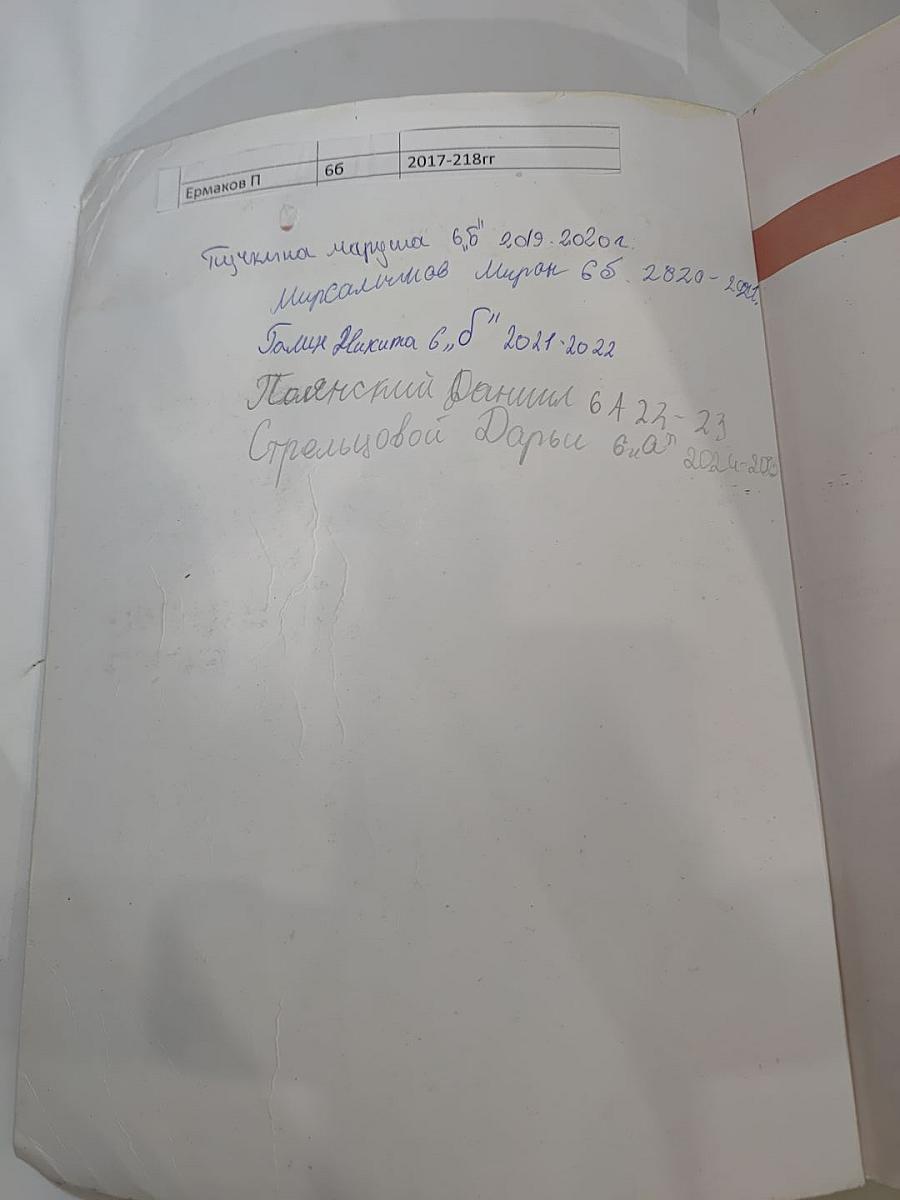 Ермаков П 6б 2017-218гг
Пучкина Маруша 6„б" 2019-2020г.
Мирсалимов Мирон 6б. 2020-2021.
Галин Никита 6„б" 2021-2022
Полянский Даниил 6 А 22-23
Стрельцовой Дарьи 6„а"